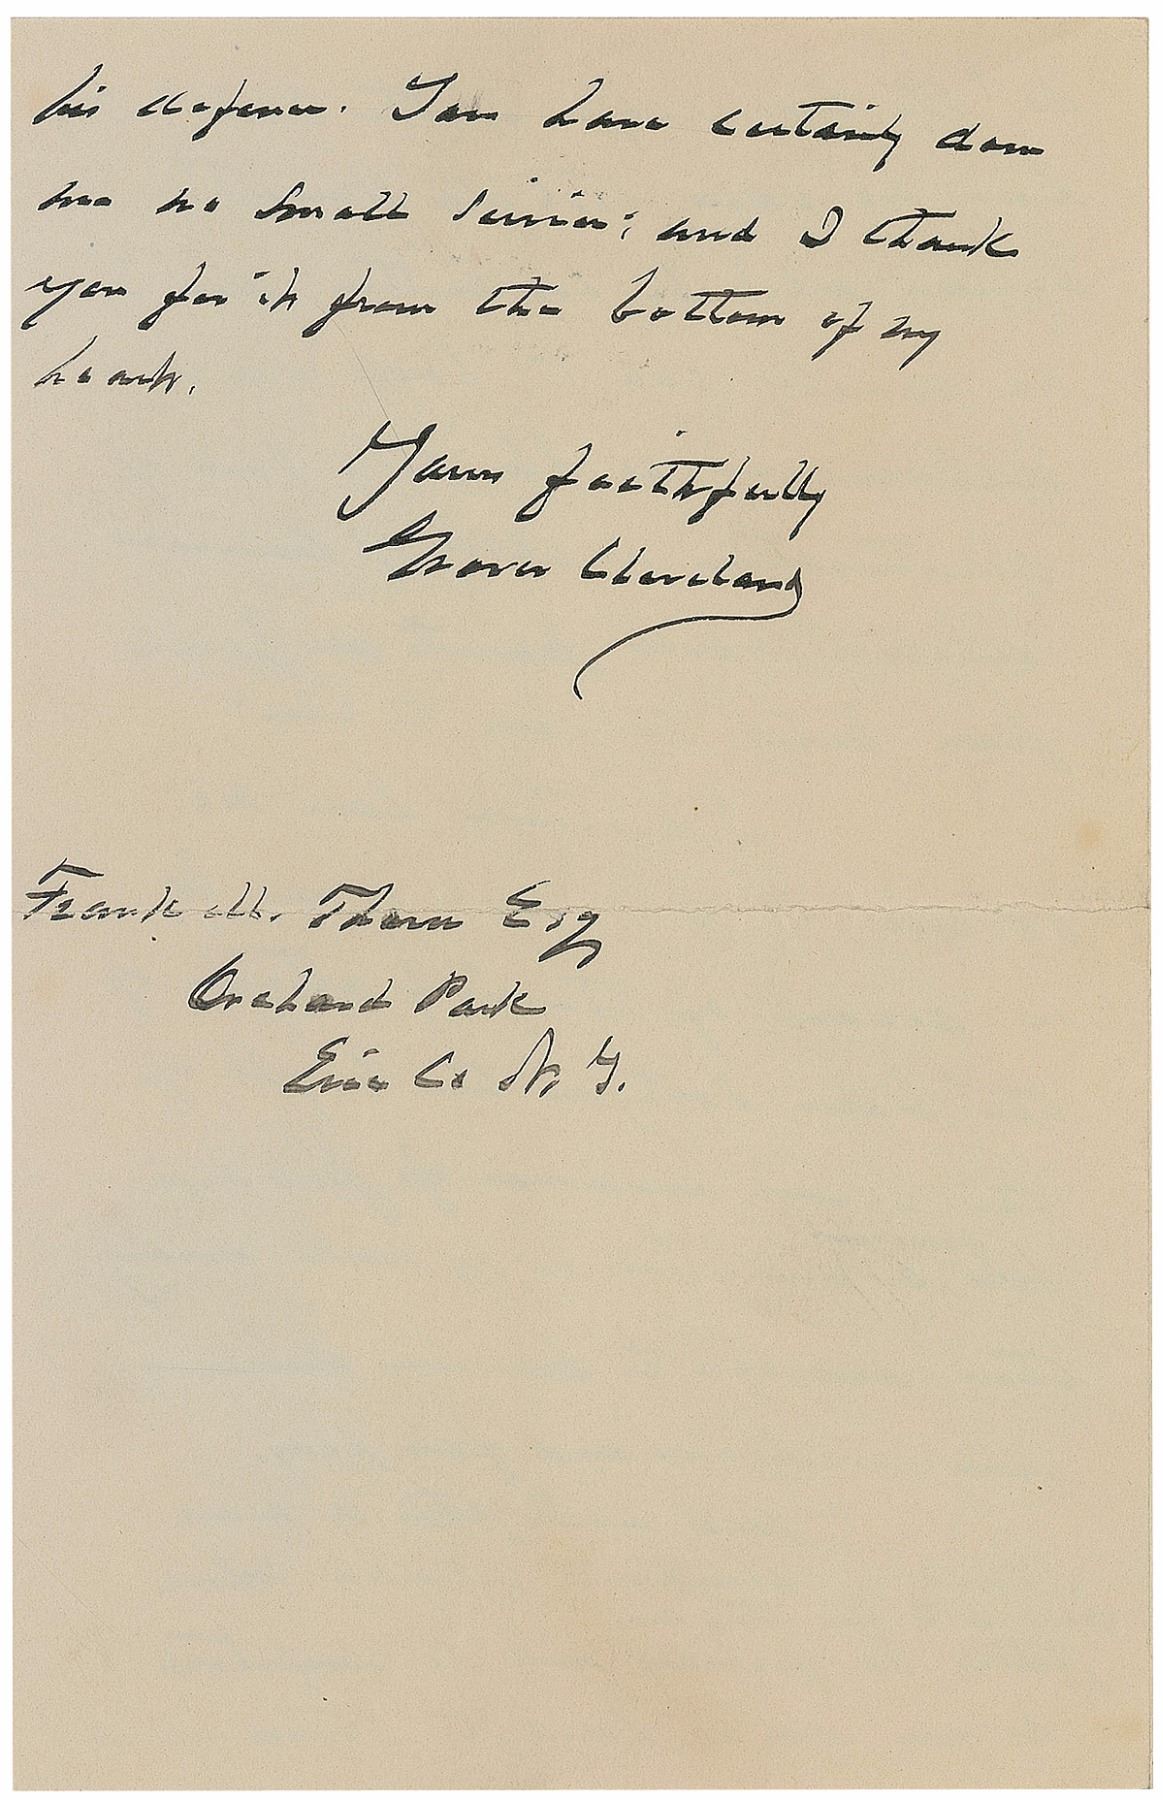 his defence. You have certainly done
me no small service; and I thank
you for it from the bottom of my
heart.
Yours faithfully
Grover Cleveland
Frank M. Thorn Esq
Orchard Park
Erie Co N. Y.